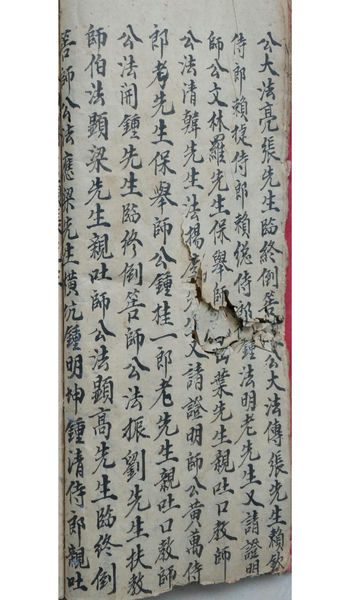 公大法亮張先生臨終倒筶公大法傳張先生賴欽
侍郎賴捷侍郎賴總侍郎鍾法明老先生又請證明
師公文林羅先生保舉師公葉先生親吐口教師
公法清韓先生法揚又請證明師公黃萬侍
郎老先生保舉師公鍾桂一郎老先生親吐口教師
公法開鍾先生臨終倒筶師公法振劉先生扶教
師伯法顯梁先生親吐師公法顯高先生臨終倒
筶師公法應梁先生黃元鍾明坤鍾清侍郎親吐